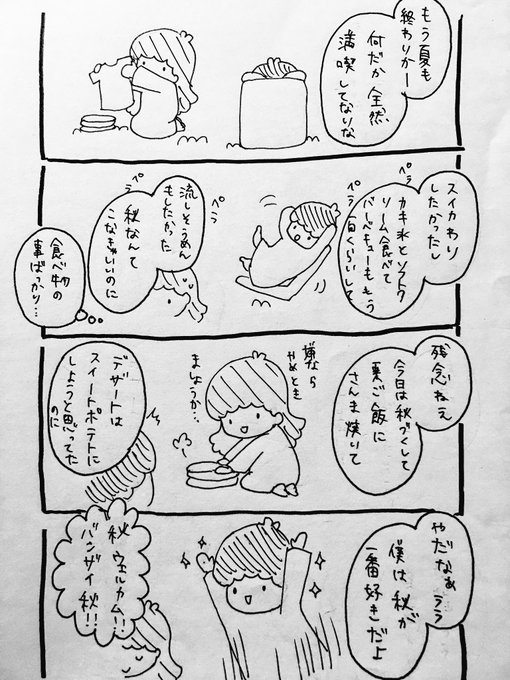 もう夏も
終わりかー
何だか全然
満喫してないな
スイカわり
したかったし
カキ氷とソフトク
リーム食べて
バーベキューももう
一回くらいして
ペラ
ペラ
流しそうめん
もしたかった
秋なんて
こなきゃいいのに
ペラ
ペラ
食べ物の
事ばっかり…
残念ねぇ
今日は秋づくして
栗ご飯に
さんま焼いて
嫌なら
やめとき
ましょうか…
デザートは
スイートポテトに
しようと思ってた
のに
やだなぁララ
僕は秋が
一番好きだよ
秋ウェルカム!!
バンザイ秋!!